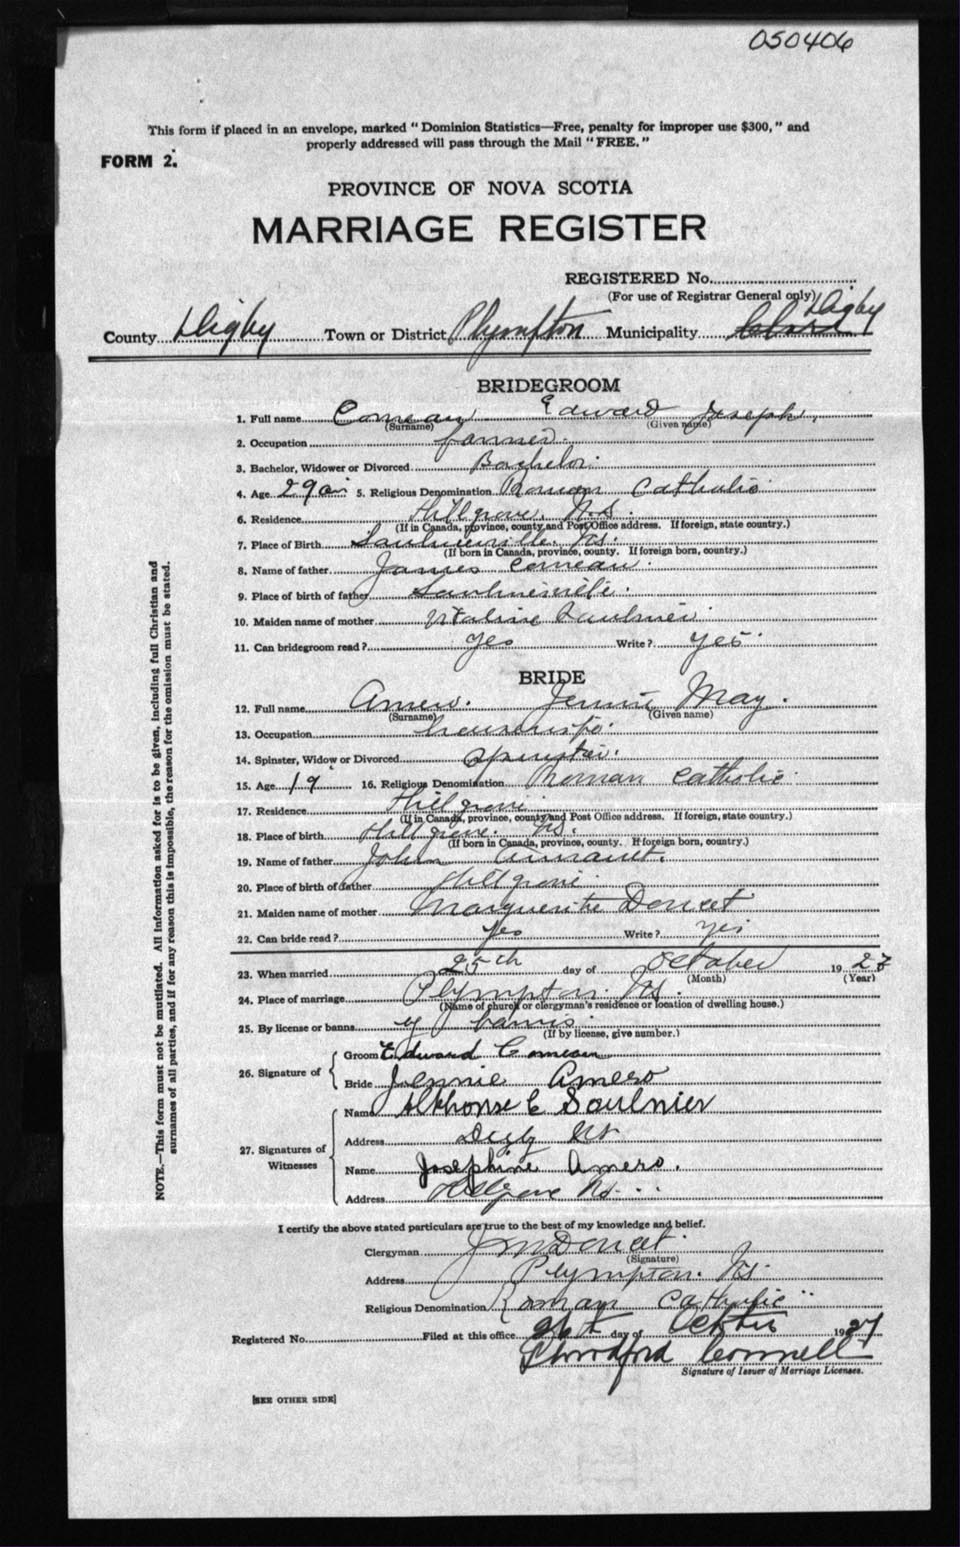 050406
This form if placed in an envelope, marked "Dominion Statistics—Free, penalty for improper use $300," and
properly addressed will pass through the Mail "FREE."
FORM 2.
PROVINCE OF NOVA SCOTIA
MARRIAGE REGISTER
REGISTERED No.
(For use of Registrar General only)
County Digby Town or District Plympton Municipality Clare Digby
BRIDEGROOM
1. Full name Comeau Edward Joseph.
(Surname) (Given name)
2. Occupation farmer.
3. Bachelor, Widower or Divorced Bachelor.
4. Age 29 5. Religious Denomination Roman Catholic
6. Residence Hillgrove. N.S.
(If in Canada, province, county and Post Office address. If foreign, state country.)
7. Place of Birth Saulnierville. N.S.
(If born in Canada, province, county. If foreign born, country.)
8. Name of father James Comeau.
9. Place of birth of father Saulnierville.
10. Maiden name of mother Saulnier
11. Can bridegroom read? yes Write? yes.
BRIDE
12. Full name Amero. Jennie May.
(Surname) (Given name)
13. Occupation
14. Spinster, Widow or Divorced Spinster.
15. Age 19 16. Religious Denomination Roman Catholic.
17. Residence Hillgrove
(If in Canada, province, county and Post Office address. If foreign, state country.)
18. Place of birth Hillgrove. N.S.
(If born in Canada, province, county. If foreign born, country.)
19. Name of father John
20. Place of birth of father Hillgrove.
21. Maiden name of mother Marguerite Doucet
22. Can bride read? Yes Write? yes
23. When married 25th day of October 1927
(Month) (Year)
24. Place of marriage Plympton. N.S.
(Name of church or clergyman's residence or location of dwelling house.)
25. By license or banns by banns.
(If by license, give number.)
26. Signature of
Groom Edward Comeau
Bride Jennie Amero
27. Signatures of Witnesses
Name Alphonse E Saulnier
Address Digby NS
Name Josephine Amero.
Address Hillgrove N.S.
I certify the above stated particulars are true to the best of my knowledge and belief.
Clergyman J M Doucet.
(Signature)
Address Plympton. N.S.
Religious Denomination Roman Catholic
Registered No. Filed at this office 26th day of October 1927
Connell
Signature of Issuer of Marriage Licenses.
[SEE OTHER SIDE]
NOTE.—This form must not be mutilated. All information asked for is to be given, including full Christian and
surnames of all parties, and if for any reason this is impossible, the reason for the omission must be stated.